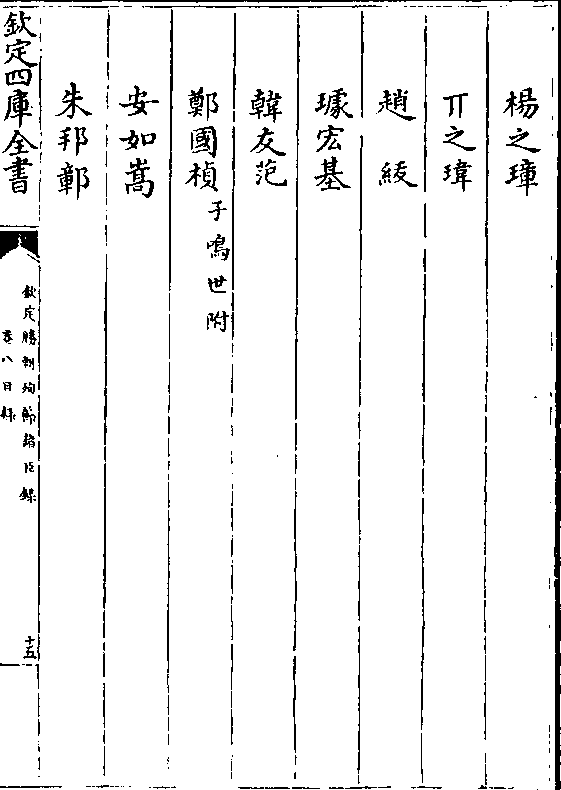 楊之璋
丌之瑋
趙
璩宏基
韓友范
鄭國楨 子鳴世附
安如嵩
朱邦鄣
欽定四庫全書
欽定勝朝殉節諸臣錄
卷八目錄
十五